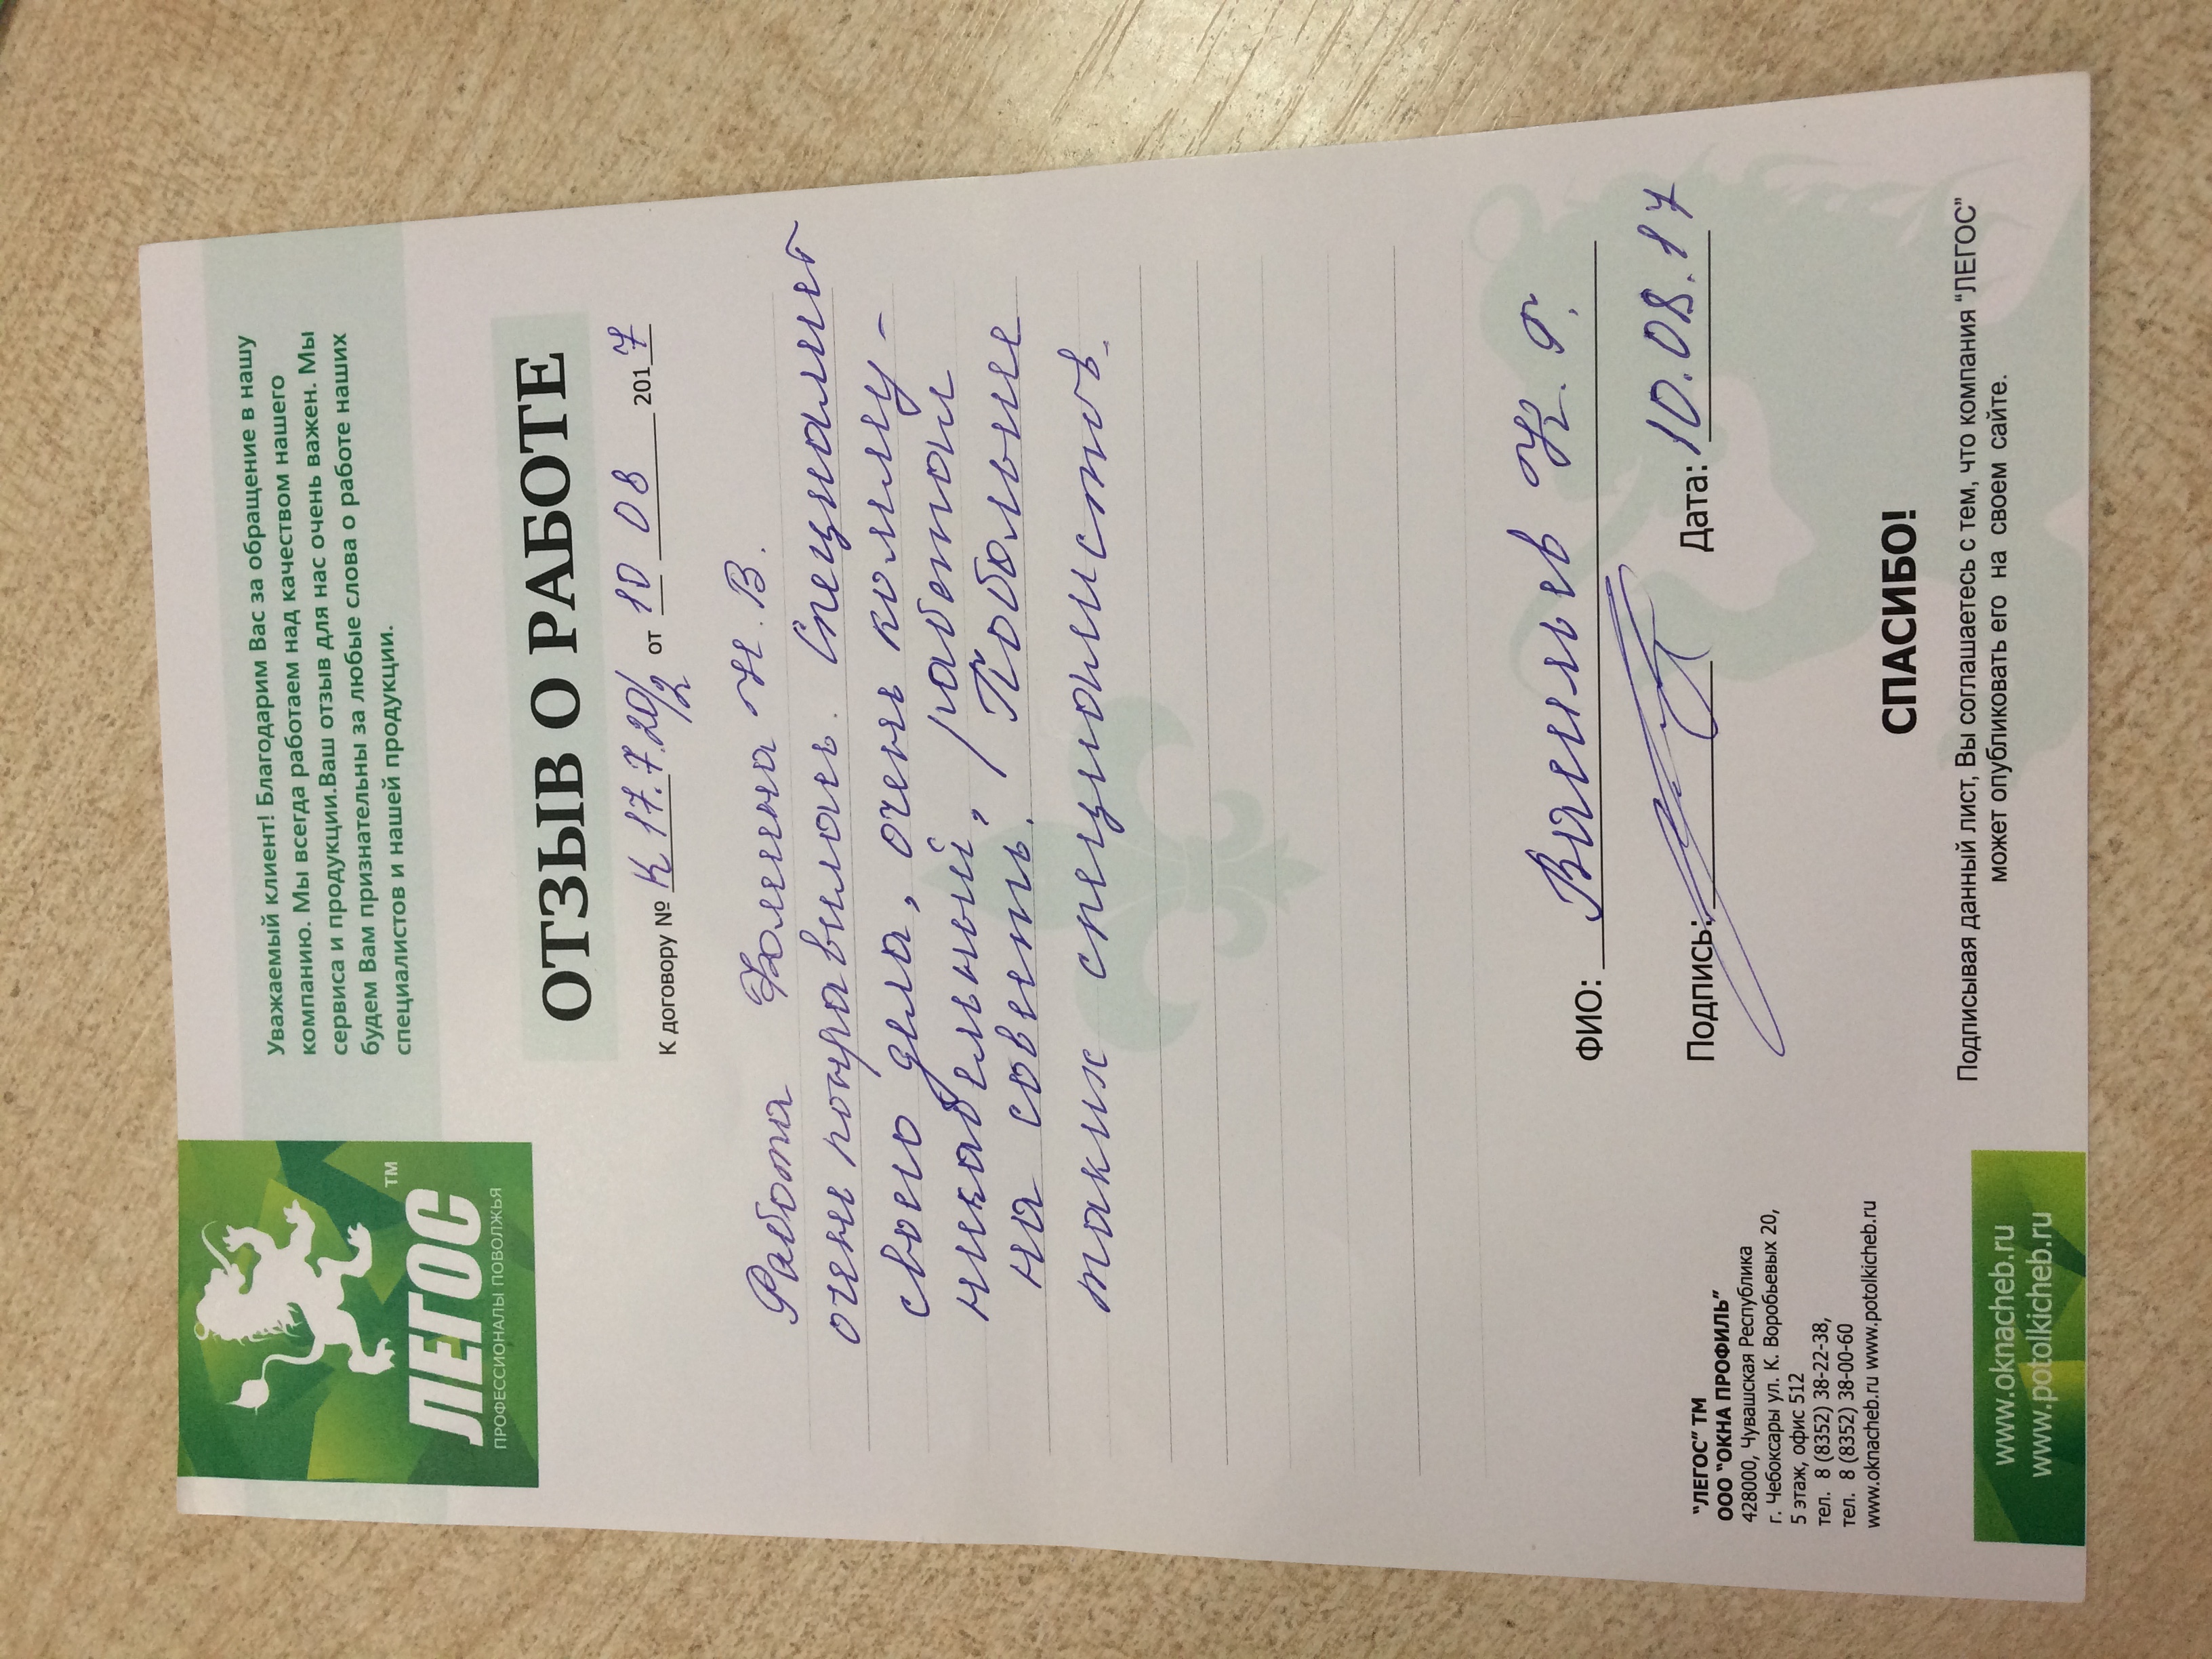 ЛЕГОС ™
ПРОФЕССИОНАЛЫ ПОВОЛЖЬЯ
Уважаемый клиент! Благодарим Вас за обращение в нашу
компанию. Мы всегда работаем над качеством нашего
сервиса и продукции.Ваш отзыв для нас очень важен. Мы
будем Вам признательны за любые слова о работе наших
специалистов и нашей продукции.
ОТЗЫВ О РАБОТЕ
К договору № К 17.7.20/2 от 10 08 2017
Работа Фомина Н. В.
очень понравилась. Специалист
своего дела, очень комму-
никабельный, работал
на совесть. Побольше
таких специалистов.
ФИО: Васильев Н. Г.
Подпись:
Дата: 10.08.17
"ЛЕГОС" ТМ
ООО "ОКНА ПРОФИЛЬ"
428000, Чувашская Республика
г. Чебоксары ул. К. Воробьевых 20,
5 этаж, офис 512
тел. 8 (8352) 38-22-38,
тел. 8 (8352) 38-00-60
www.oknacheb.ru www.potolkicheb.ru
СПАСИБО!
Подписывая данный лист, Вы соглашаетесь с тем, что компания "ЛЕГОС"
может опубликовать его на своем сайте.
www.oknacheb.ru
www.potolkicheb.ru